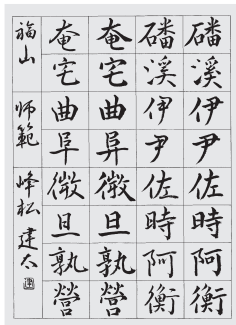 磻溪伊尹佐時阿衡
磻溪伊尹佐時阿衡
奄宅曲阜微旦孰營
奄宅曲阜微旦孰營
福山 師範 峰松建太